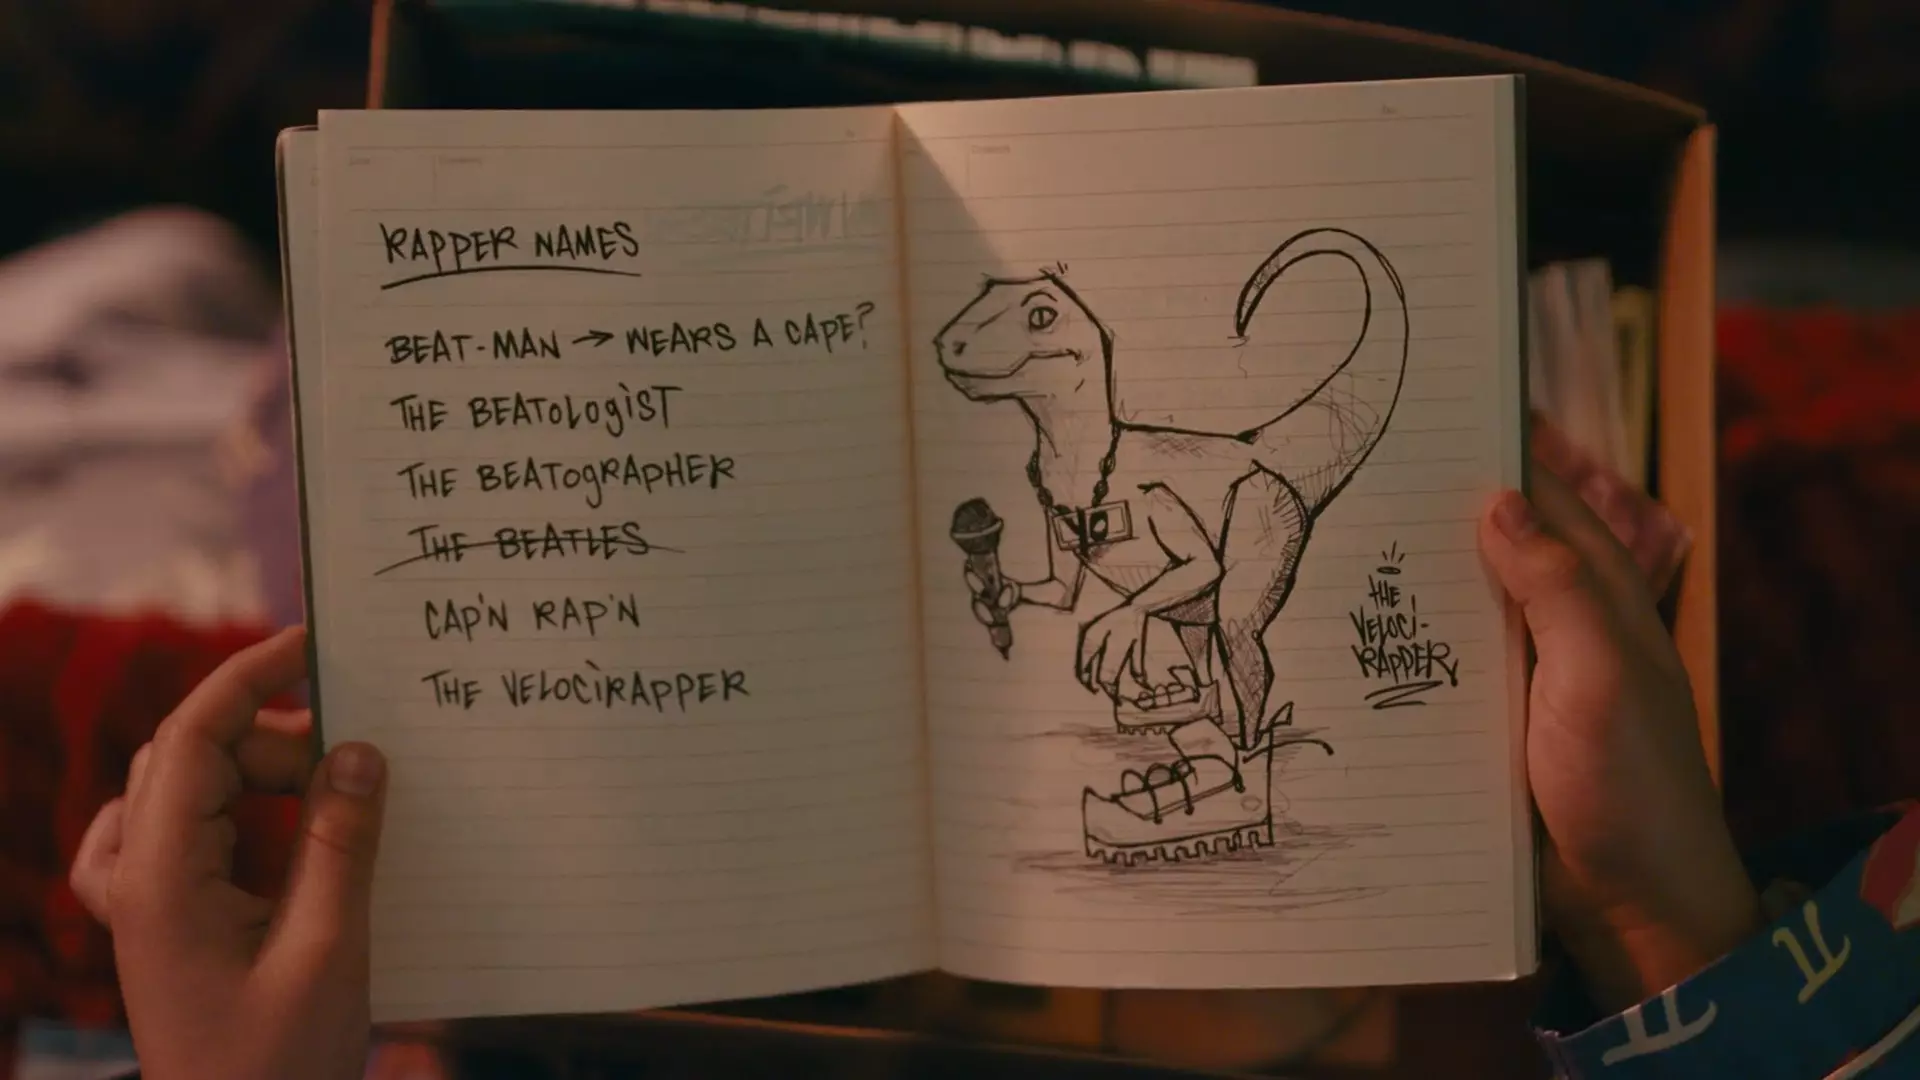 RAPPER NAMES
BEAT-MAN → WEARS A CAPE?
THE BEATOLOGIST
THE BEATOGRAPHER
THE BEATLES
CAP'N RAP'N
THE VELOCIRAPPER
THE
VELOCI-
RAPPER